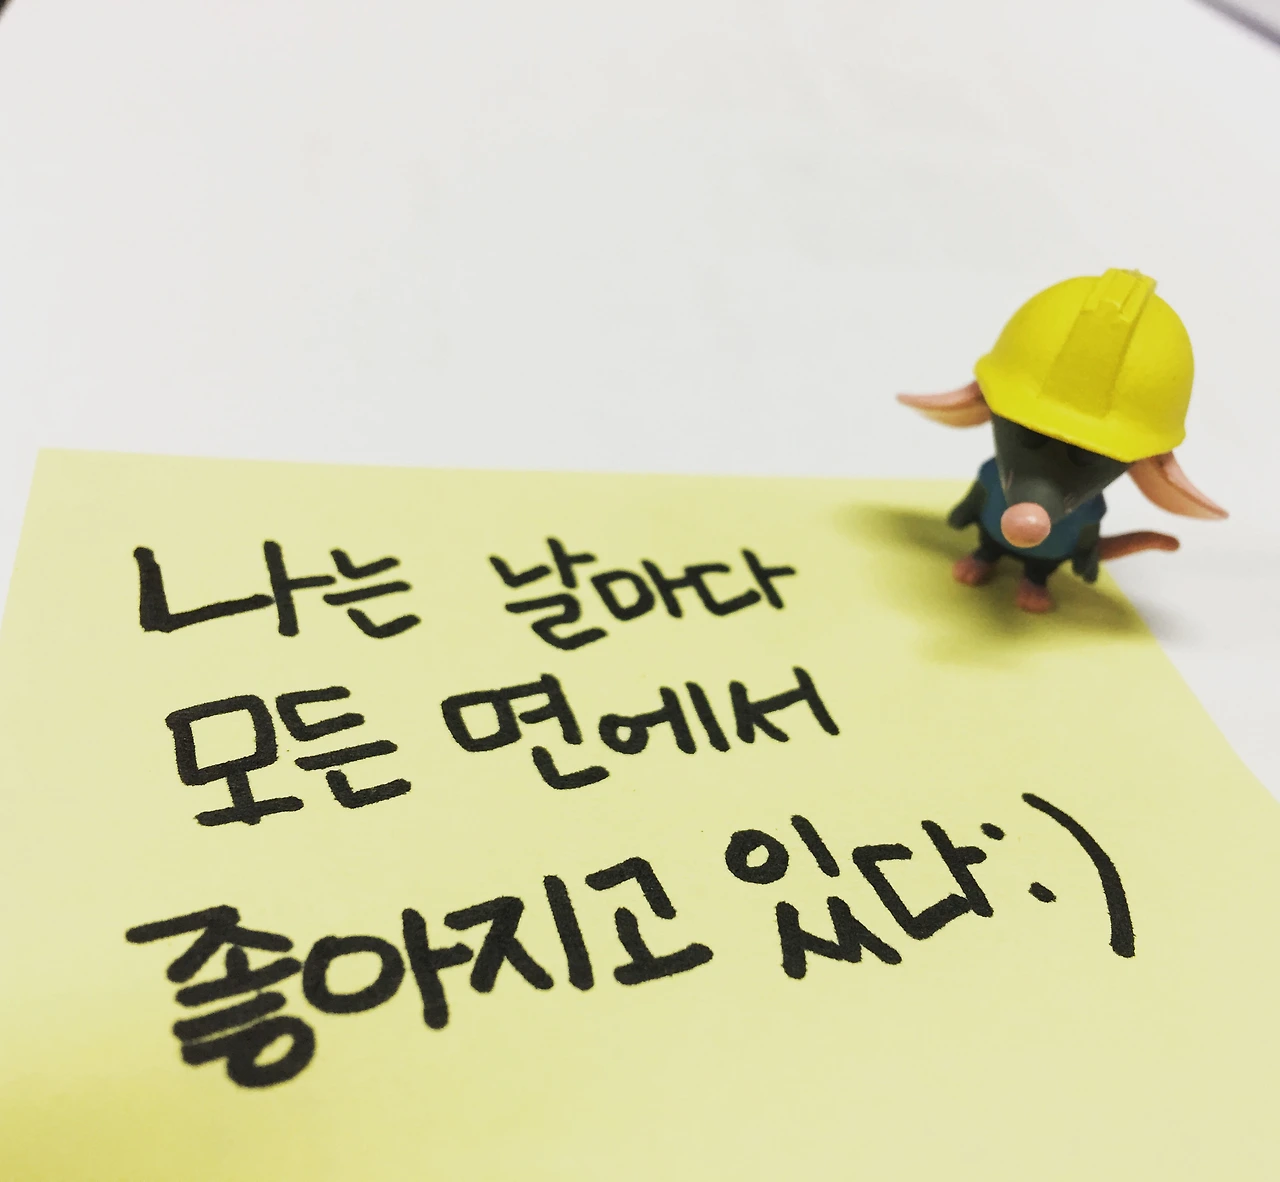 나는 날마다
모든 면에서
좋아지고 있다:)